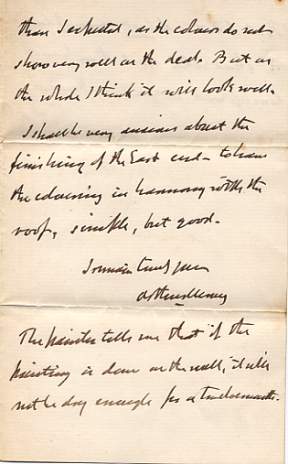 than I expected, as the colours do not
show very well on the deal. But on
the whole I think it will look well.
I shall be very anxious about the
finishing of the East end – to have
the colouring in harmony with the
roof, simple, but good.
I remain truly yours
The painter tells me that if the
painting is done on the wall, it will
not be dry enough for a twelvemonth.